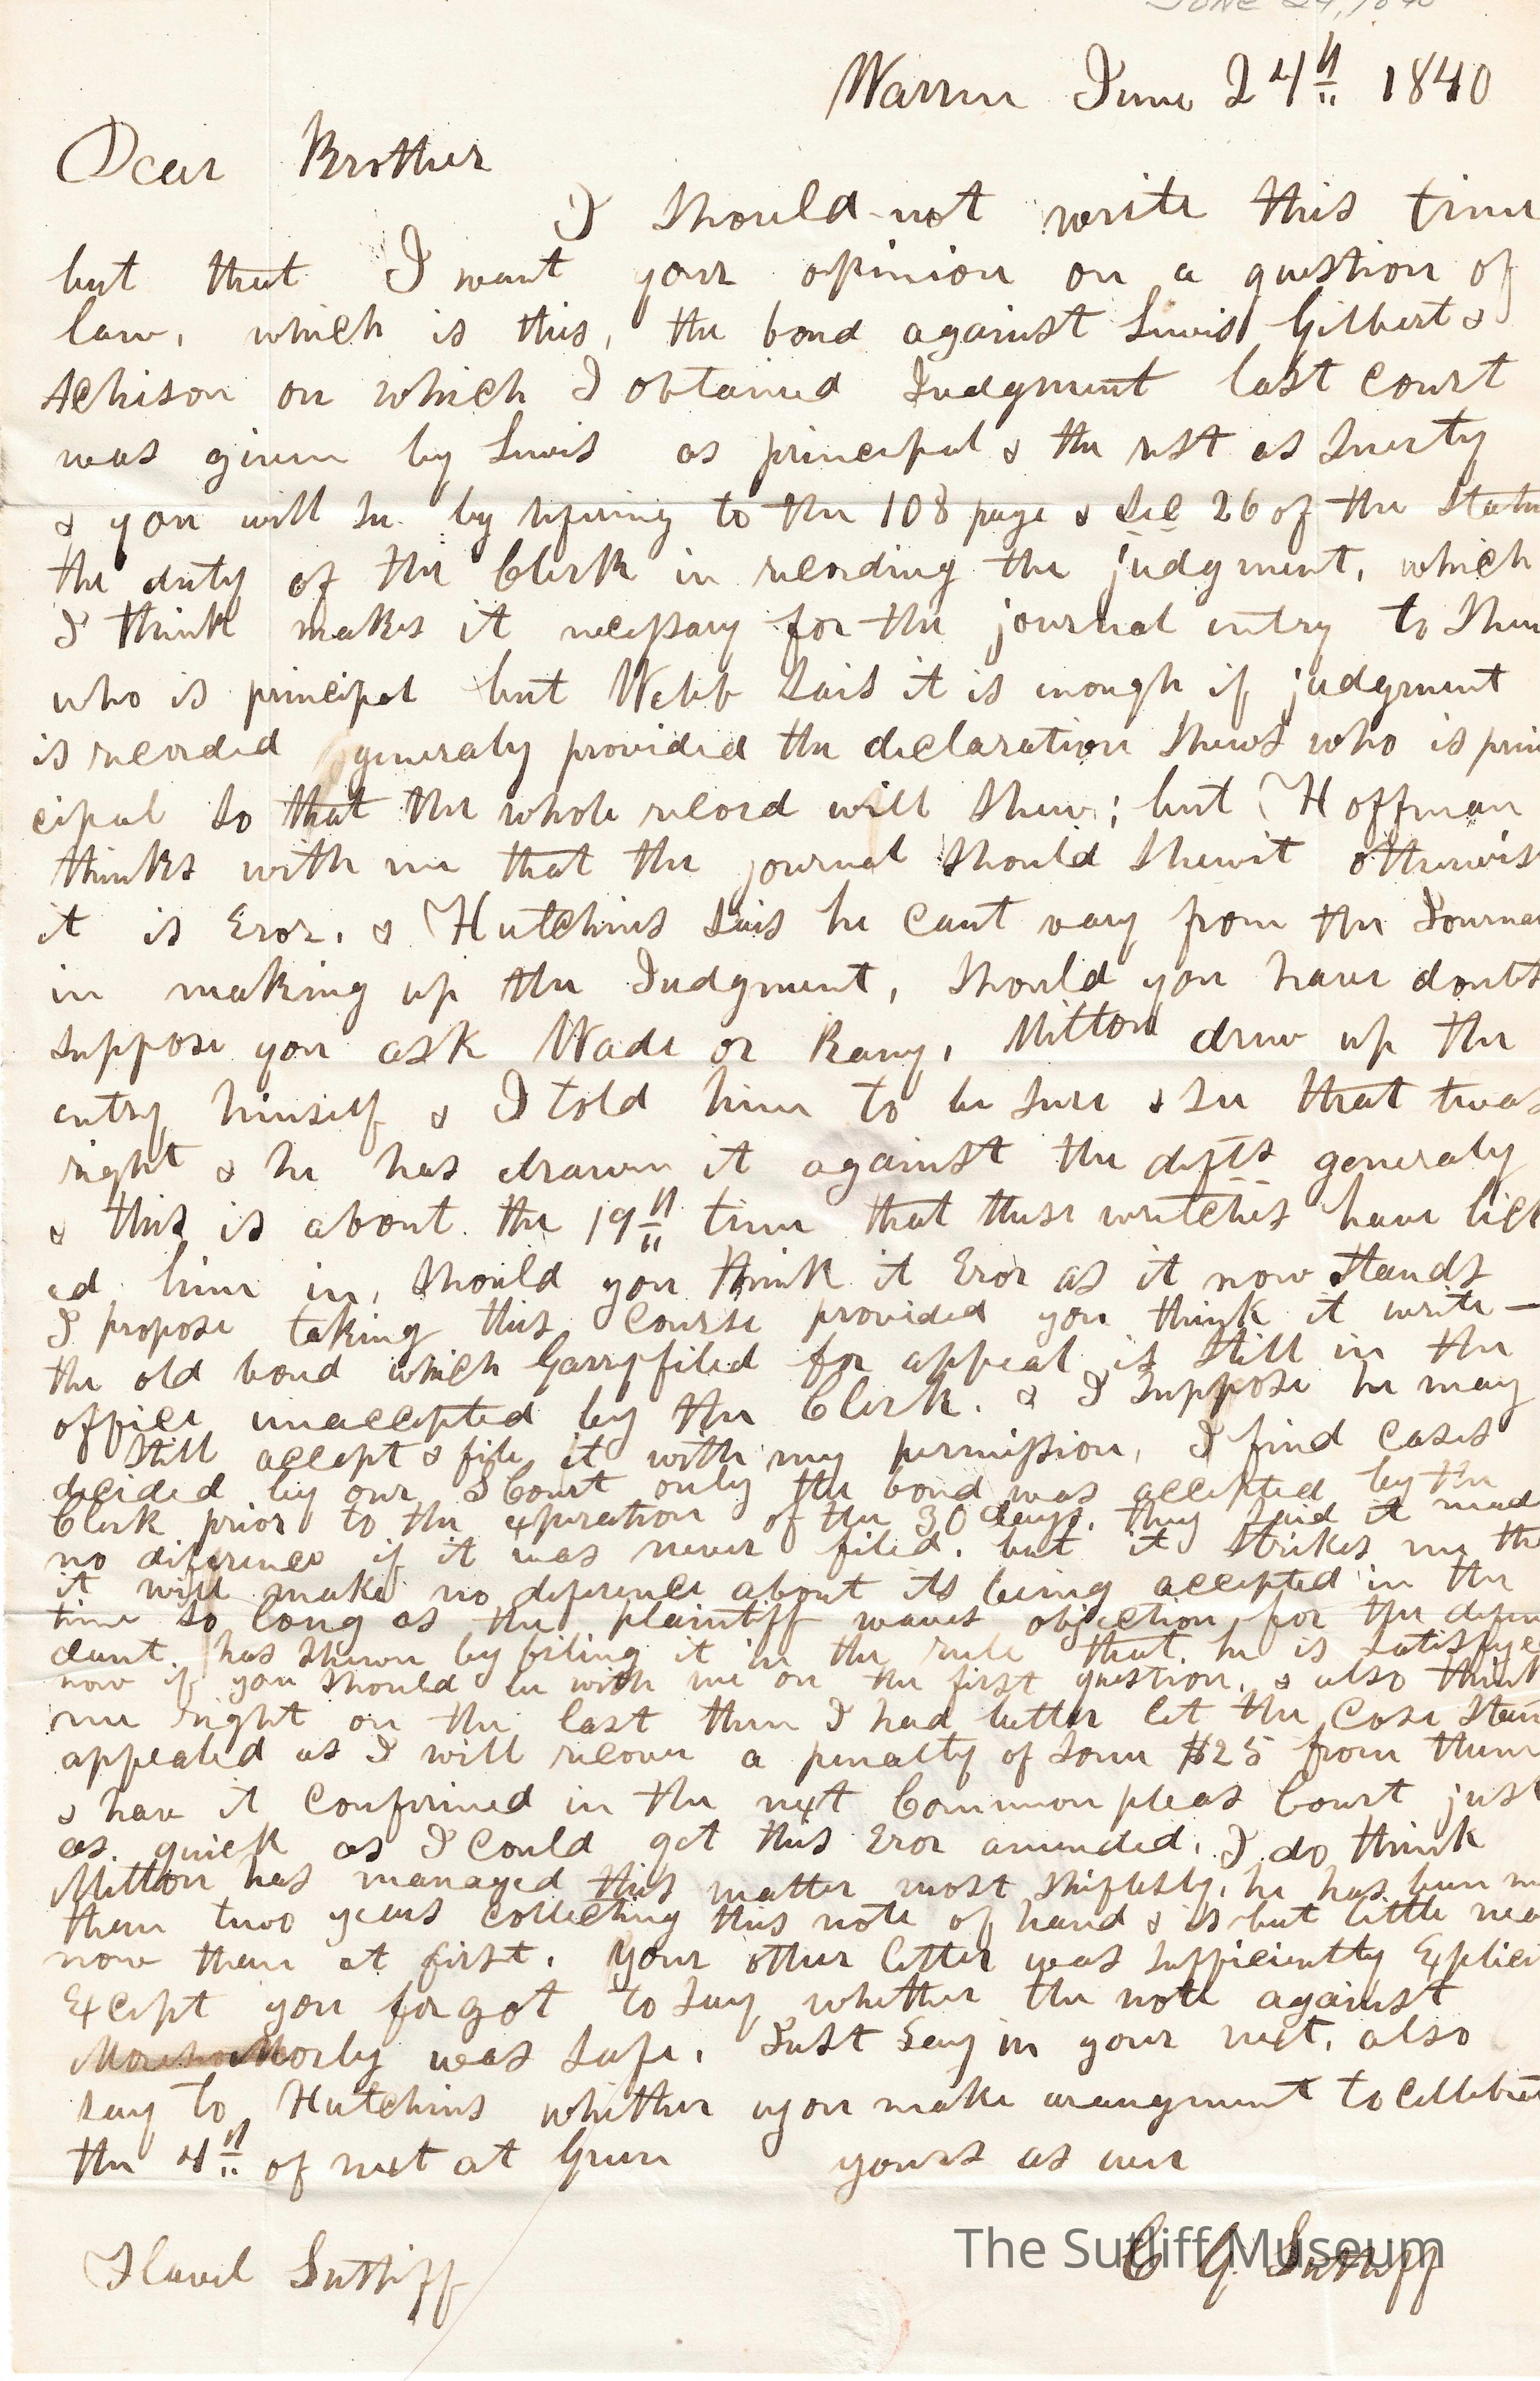 JUNE 24, 1840
Warren June 24th 1840
Dear Brother
I should not write this time
but that I want your opinion on a question of
law, which is this, the bond against Lewis Gilbert &
Achison on which I obtained Judgment last court
was given by Lewis as principal & the rest as Surety
& you will see by refering to the 108 page & Sec 26 of the Statu
the duty of the Clerk in recording the judgment, which
I think makes it necessary for the journal entry to Shew
who is principal but Webb Sais it is enough if judgment
is recorded generaly provided the declaration Shews who is prin
cipal So that the whole record will Shew; but Hoffman
thinks with me that the journal Should Shewit otherwis
it is Eror, & Hutchins Sais he cant vary from the Journal
in making up the Judgment, Should you have doubts
Suppose you ask Wade or Rany, Milton drew up the
entry himself & I told him to be Sure & See that twas
right & he has drawn it against the defts generaly
& this is about the 19th time that these wretches have lick
ed him in, Should you think it Eror as it now Stands
I propose taking this course provided you think it write —
the old bond which Garry filed for appeal is Still in the
office unaccepted by the Clerk. & I Suppose he may
Still accept & file it with my permission, I find cases
decided by our S Court only the bond was accepted by the
Clerk prior to the experation of the 30 days, they Said it mad
no diference if it was never filed, but it Strikes me the
it will make no diference about its being accepted in the
time So long as the plaintiff waves objection for the defen
dant has Shewn by filing it in the rule that he is Satisfye
now if you Should be with me on the first question, & also think
me right on the last then I had better let the case Stan
appealed as I will recover a penalty of Some $25 from them
& have it confirmed in the next Common pleas Court just
as quick as I could get this Eror amended, I do think
Milton has managed this matter most Shiftlesly, he has been mo
then two years collecting this note of hand & is but little nea
now then at first. Your other letter was Sufficiently Explici
Except you forgot to Say whether the note against
Morly was Safe, Just Say in your next, also
Say to Hutchins whether you make arangment to Cellebrat
the 4th of next at Green yours as ever
C G Sutliff
Flavel Sutliff
The Sutliff Museum